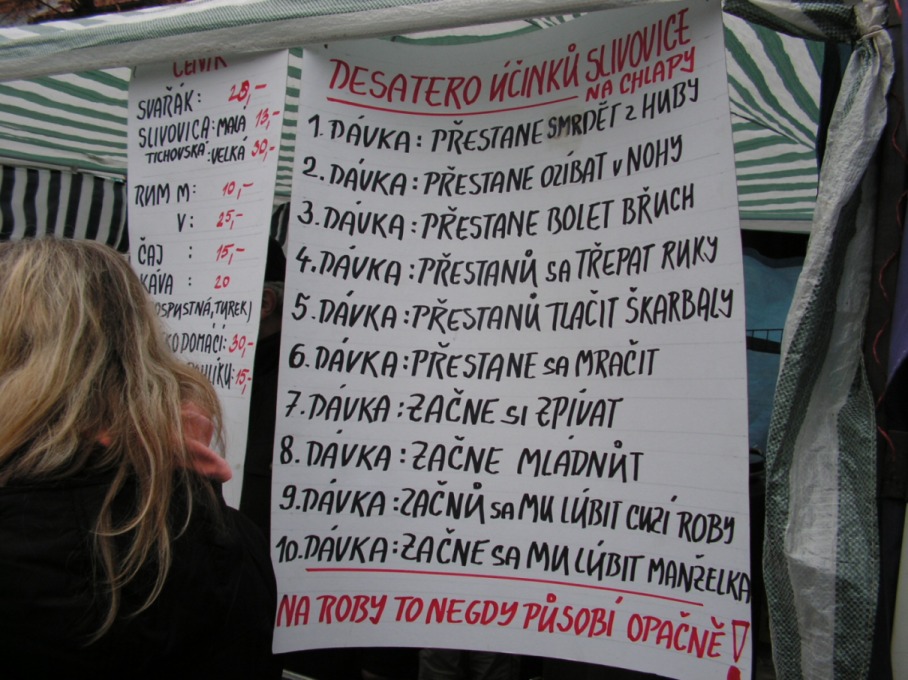 CENÍK
SVAŘÁK: 25,-
SLIVOVICA: MALÁ 15,-
TICHOVSKÁ: VELKÁ 30,-
RUM M: 10,-
V: 25,-
ČAJ : 15,-
KÁVA : 20
TUREK)
DOMÁCÍ: 30,-
15,-
DESATERO ÚČINKŮ SLIVOVICE
NA CHLAPY
1. DÁVKA: PŘESTANE SMRDĚT z HUBY
2. DÁVKA: PŘESTANE OZÍBAT v NOHY
3. DÁVKA: PŘESTANE BOLET BŘUCH
4. DÁVKA: PŘESTANŮ sa TŘEPAT RUKY
5. DÁVKA: PŘESTANŮ TLAČIT ŠKARBALY
6. DÁVKA: PŘESTANE sa MRAČIT
7. DÁVKA: ZAČNE si ZPÍVAT
8. DÁVKA: ZAČNE MLÁDNÚT
9. DÁVKA: ZAČNŮ sa MU LÚBIT CUZÍ ROBY
10. DÁVKA: ZAČNE SA MU LÚBIT MANŽELKA
NA ROBY TO NEGDY PŮSOBÍ OPAČNĚ!